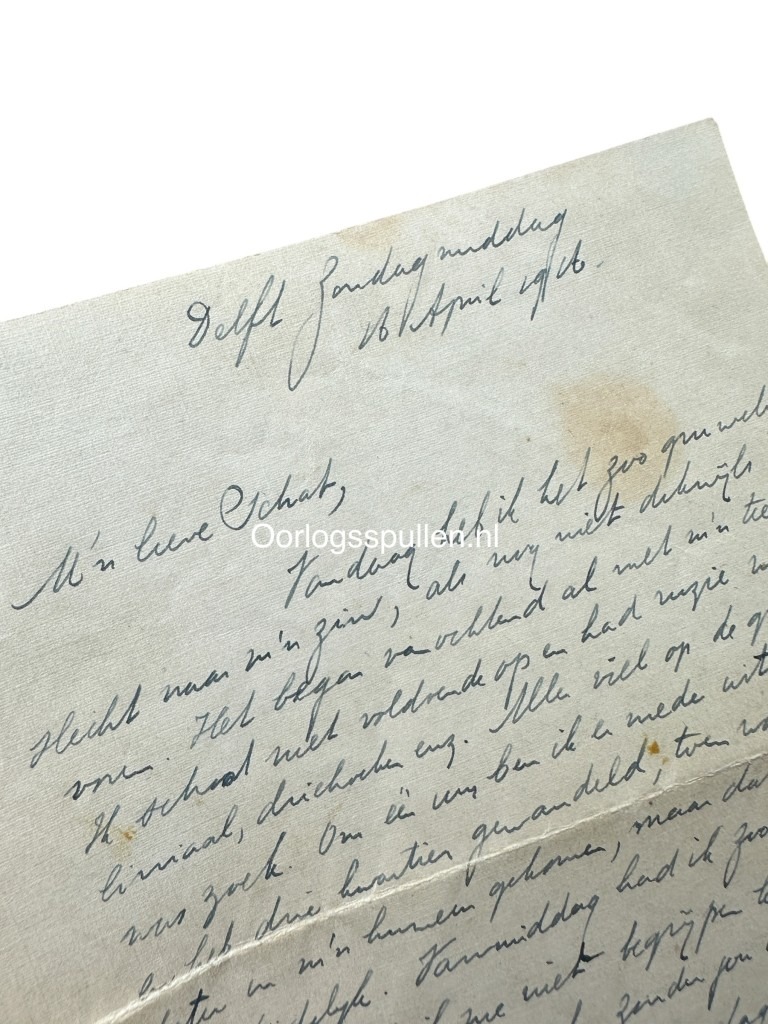 Delft Zondagmiddag
16 April 1916.
M'n lieve Schat,
Vandaag heb ik het zoo gruwel
slecht naar m'n zin, als nog niet dikwijls
voren. Het began vanochtend al met m'n
Ik schoot niet voldoende op en had ruzie
liniaal, driehoeken enz. Alles viel op de
was zoek. Om één uur ben ik er mede
en heb drie kwartier gewandeld, toen
in m'n humeur gekomen, maar
Vanmiddag had ik zoo
me niet begrijpen
zonder jou
Oorlogsspullen.nl